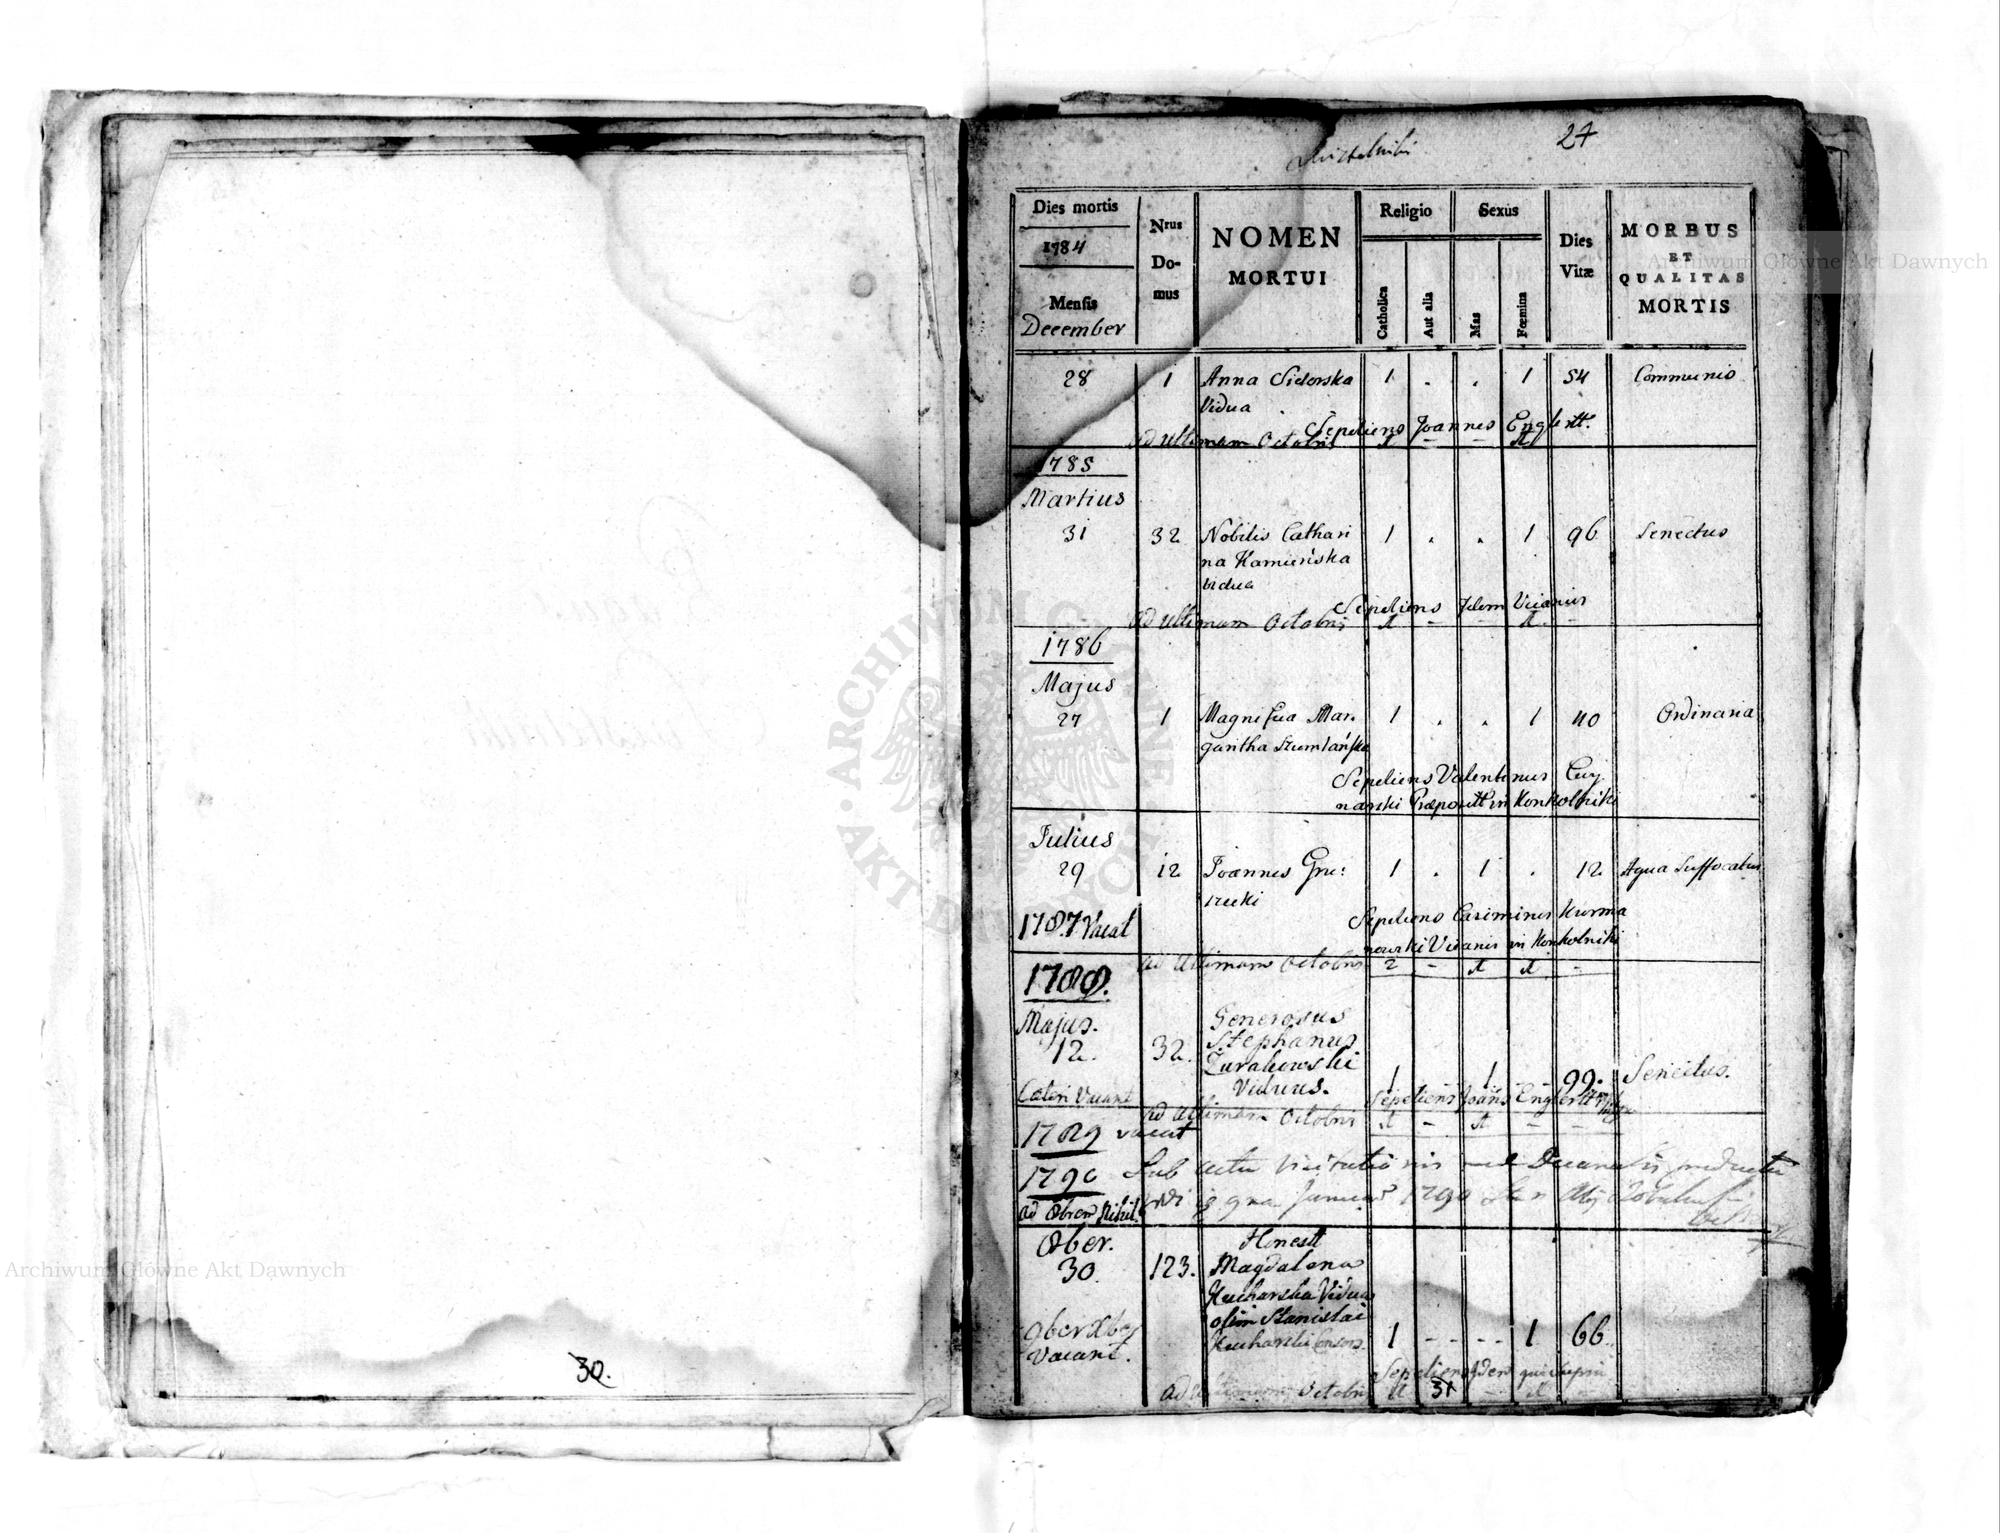 24
Dies mortis
1784
Mensis
December
Nrus
Do-
mus
NOMEN
MORTUI
Religio
Catholica
Aut alia
Sexus
Mas
Fœmina
Dies
Vitæ
MORBUS
ET
QUALITAS
MORTIS
28 1 Anna Sidorska 1 . . 1 54 Communio
Vidua
Sepeliens Joannes Englertt.
ad ultimam Octobris 1 - - 1
1785
Martius
31 32 Nobilis Cathari 1 . . 1 96 Senectus
na Kamieńska
vidua
Sepeliens Idem Vicarius
ad ultimam Octobris 1 - - 1 -
1786
Majus
27 1 Magnifica Mar. 1 . . 1 40 Ordinaria
garitha Szumlańska
Sepeliens Valentinus Cuy.
narski Præpositt in Konkolniki
Julius
29 12 Joannes Gru: 1 . 1 . 12 Aqua Suffocatus
szecki
1787 Vacat
Sepeliens Casimirus Kurma
nowski Vicarius in Konkolniki
ad ultimam Octobris 2 - 1 1 -
1788.
Majus. Generosus
12. 32. Stephanus
Żurakowski
Viduus. 1 1 - 99. Senectus.
Cæteri Vacant Sepeliens Joans Englertt
ad ultimam Octobris 1 - 1 - -
1789 vacat
1790 Sub actu Visitationis
ad 8brem Nihil 1790
8ber. Honestt
30. 123. Magdalena
Kucharska Vidua
olim Stanislai
9ber Xber Kucharski 1 - - - 1 66.
Vacant.
Sepeliens Idem qui supra
ad ultimam Octobris 1 - 1
31
30.
Archiwum Główne Akt Dawnych
Archiwum Główne Akt Dawnych
ARCHIWUM GŁÓWNE
AKT DAWNYCH